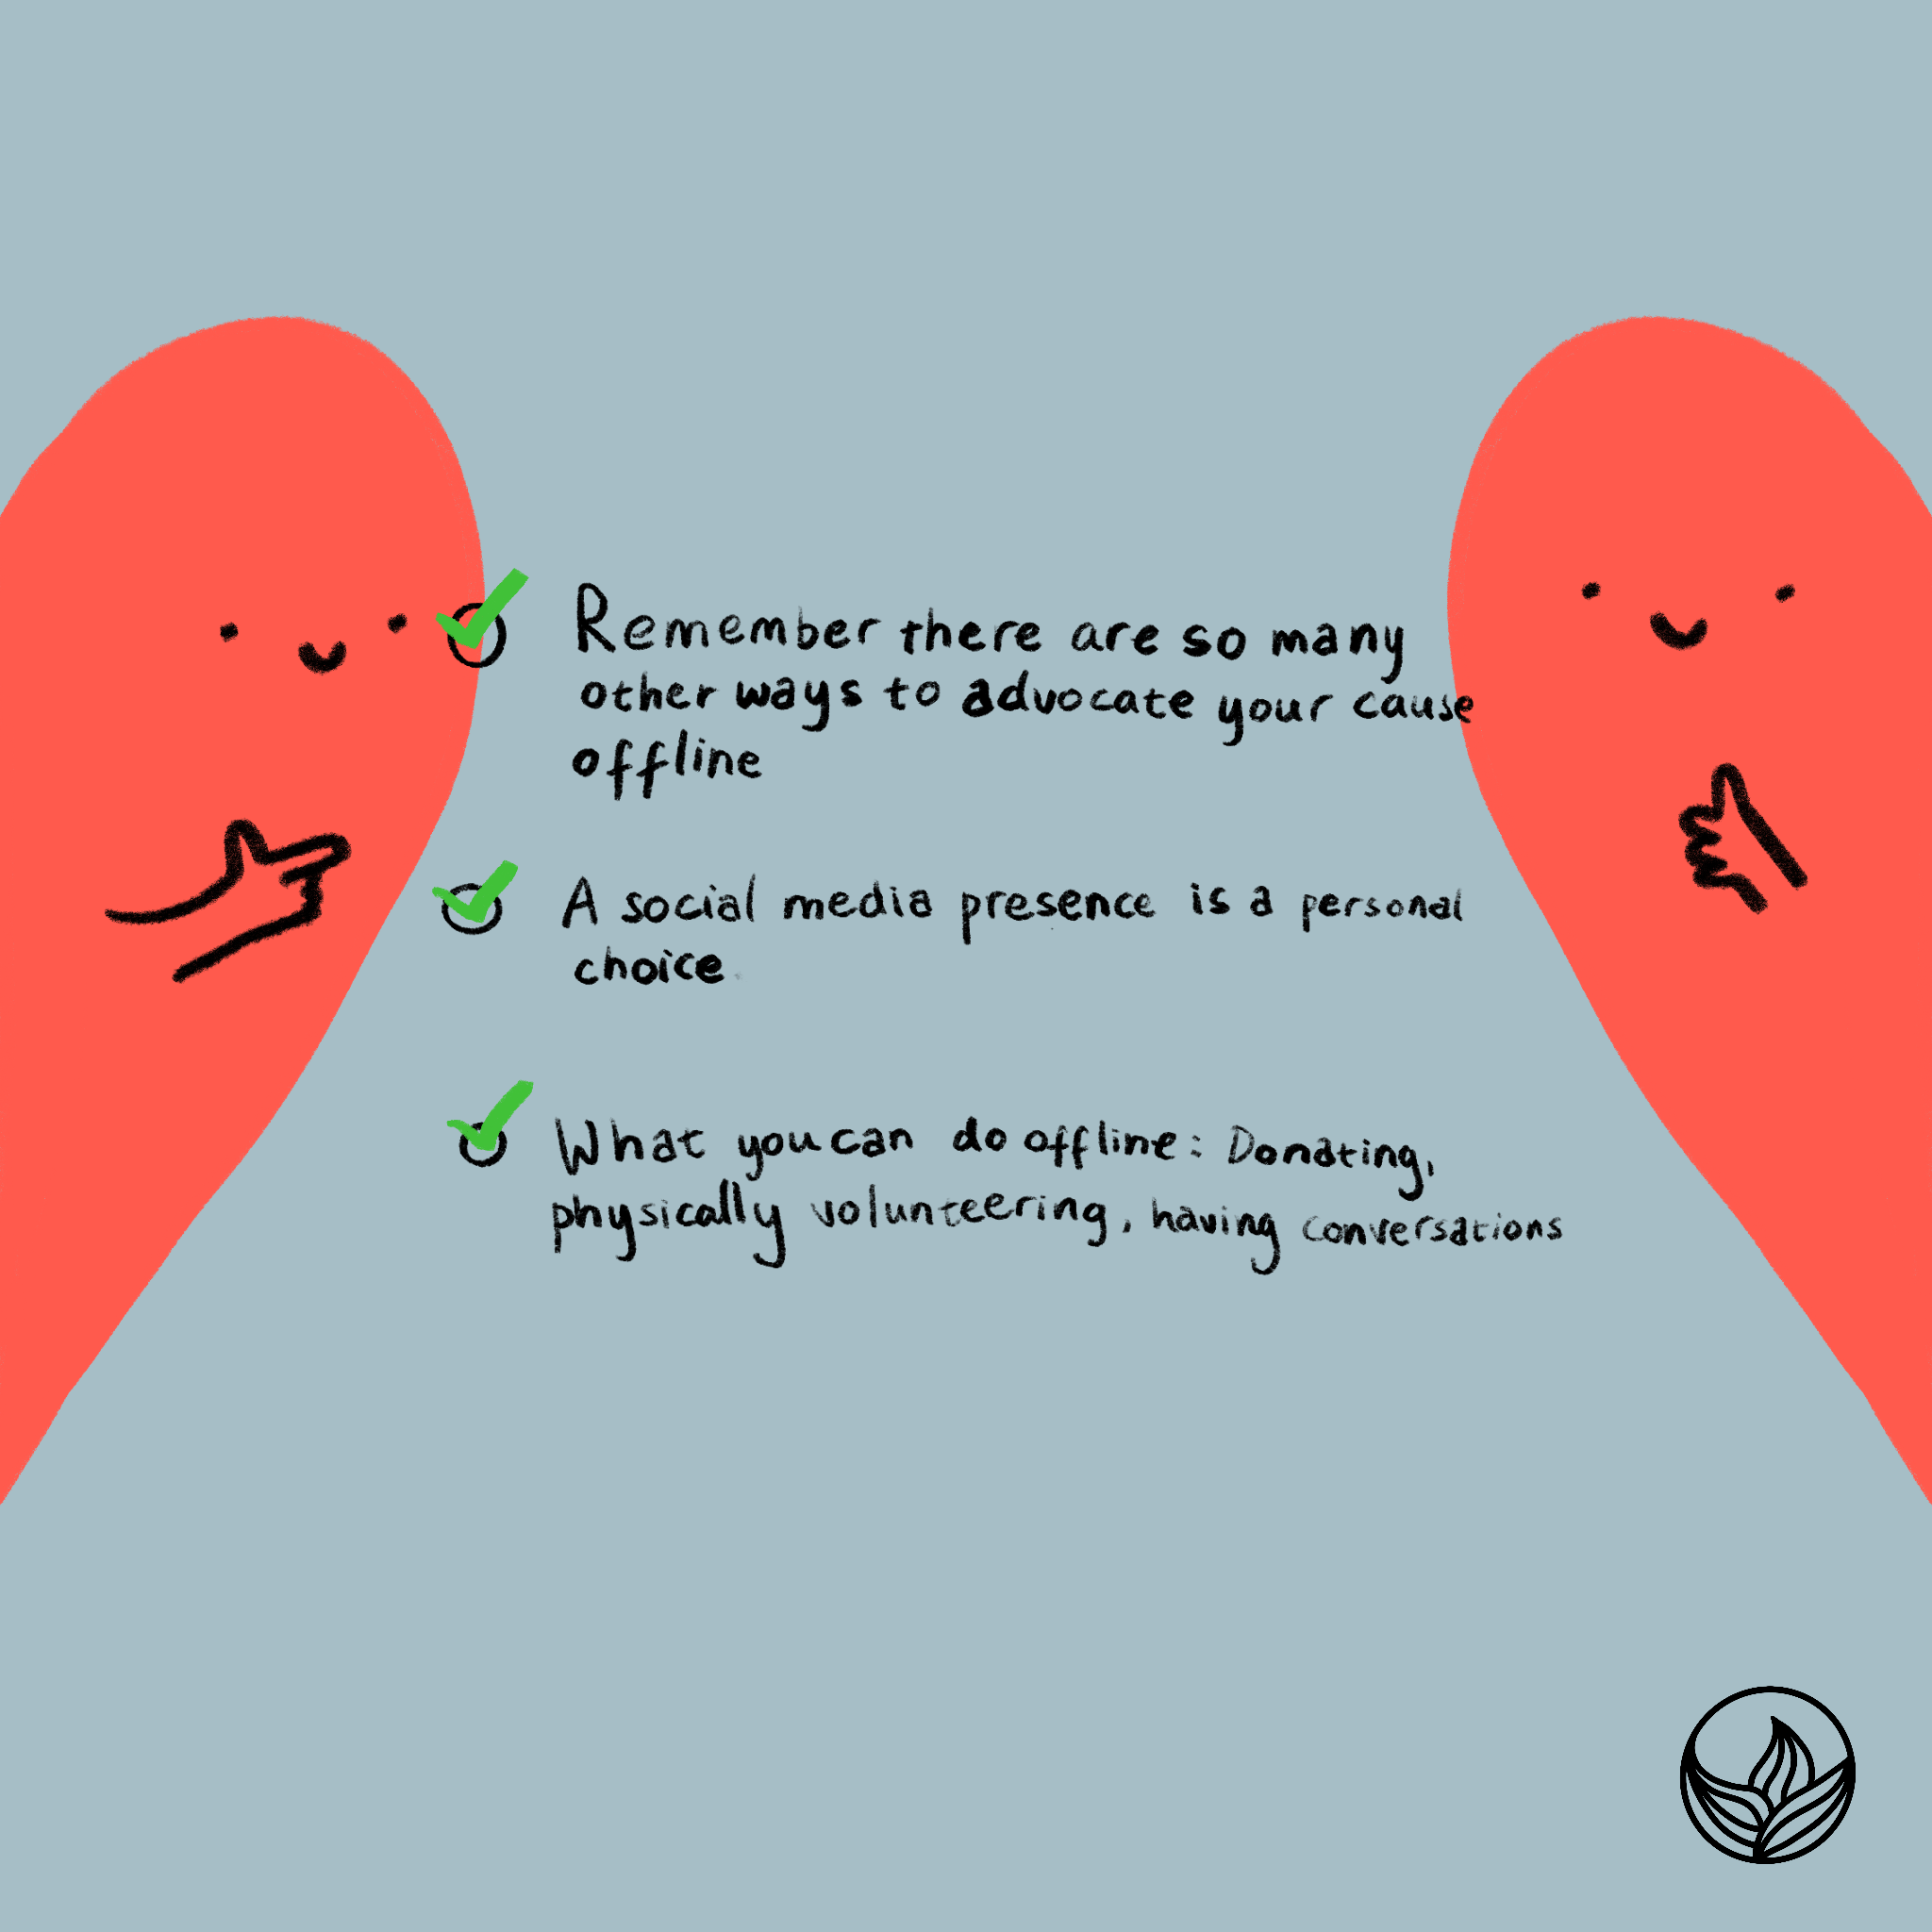 Remember there are so many
other ways to advocate your cause
offline
A social media presence is a personal
choice
What you can do offline: Donating,
physically volunteering, having conversations